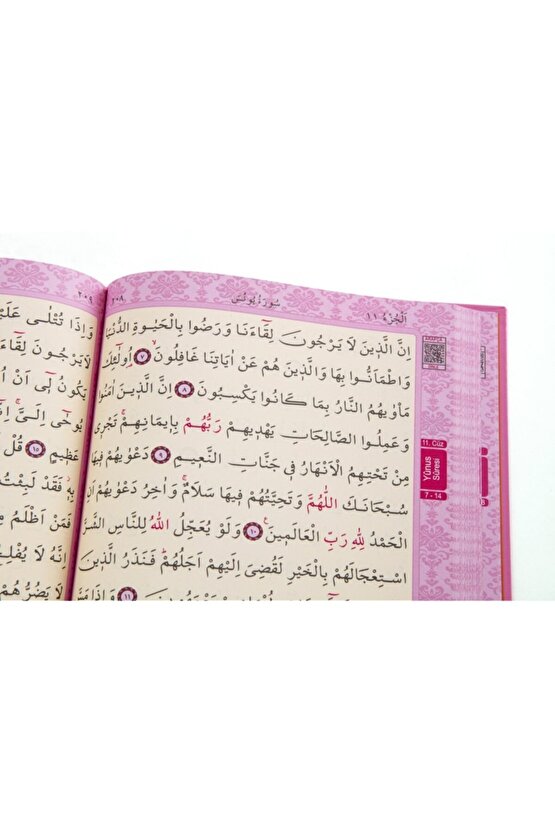 اَلْجُزْءُ ١١
سُورَةُ يُونُسَ
٢٠٨
اِنَّ الَّذ۪ينَ لَا يَرْجُونَ لِقَٓاءَنَا وَرَضُوا بِالْحَيٰوةِ الدُّنْيَا
وَاطْمَاَنُّوا بِهَا وَالَّذ۪ينَ هُمْ عَنْ اٰيَاتِنَا غَافِلُونَۙ ﴿٧﴾ اُو۬لٰٓئِكَ
مَأْوٰيهُمُ النَّارُ بِمَا كَانُوا يَكْسِبُونَ ﴿٨﴾ اِنَّ الَّذ۪ينَ اٰمَنُوا
وَعَمِلُوا الصَّالِحَاتِ يَهْد۪يهِمْ رَبُّهُمْ بِا۪يمَانِهِمْۚ تَجْر۪ي
مِنْ تَحْتِهِمُ الْاَنْهَارُ ف۪ي جَنَّاتِ النَّع۪يمِ ﴿٩﴾ دَعْوٰيهُمْ ف۪يهَا
سُبْحَانَكَ اللّٰهُمَّ وَتَحِيَّتُهُمْ ف۪يهَا سَلَامٌۚ وَاٰخِرُ دَعْوٰيهُمْ اَنِ
الْحَمْدُ لِلّٰهِ رَبِّ الْعَالَم۪ينَ۟ ﴿١٠﴾ وَلَوْ يُعَجِّلُ اللّٰهُ لِلنَّاسِ الشَّرَّ
اسْتِعْجَالَهُمْ بِالْخَيْرِ لَقُضِيَ اِلَيْهِمْ اَجَلُهُمْۜ فَنَذَرُ الَّذ۪ينَ
﴿١١﴾ وَاِذَا مَسَّ
11. Cüz
Yûnus
Sûresi
7 - 14
٢٠٩
وَاِذَا تُتْلٰى عَلَيْ
لَا يَرْجُونَ لِقَٓا
يَكُونُ ل۪ٓي اَنْ اُ
يُوحٰٓى اِلَيَّۚ اِنّ۪ٓي
عَظ۪يمٍ ﴿١٥﴾ قُلْ
بِه۪ۘ فَقَدْ لَبِثْتُ
فَمَنْ اَظْلَمُ مِ
اِنَّهُ لَا يُفْلِـ
لَا يَضُرُّهُمْ